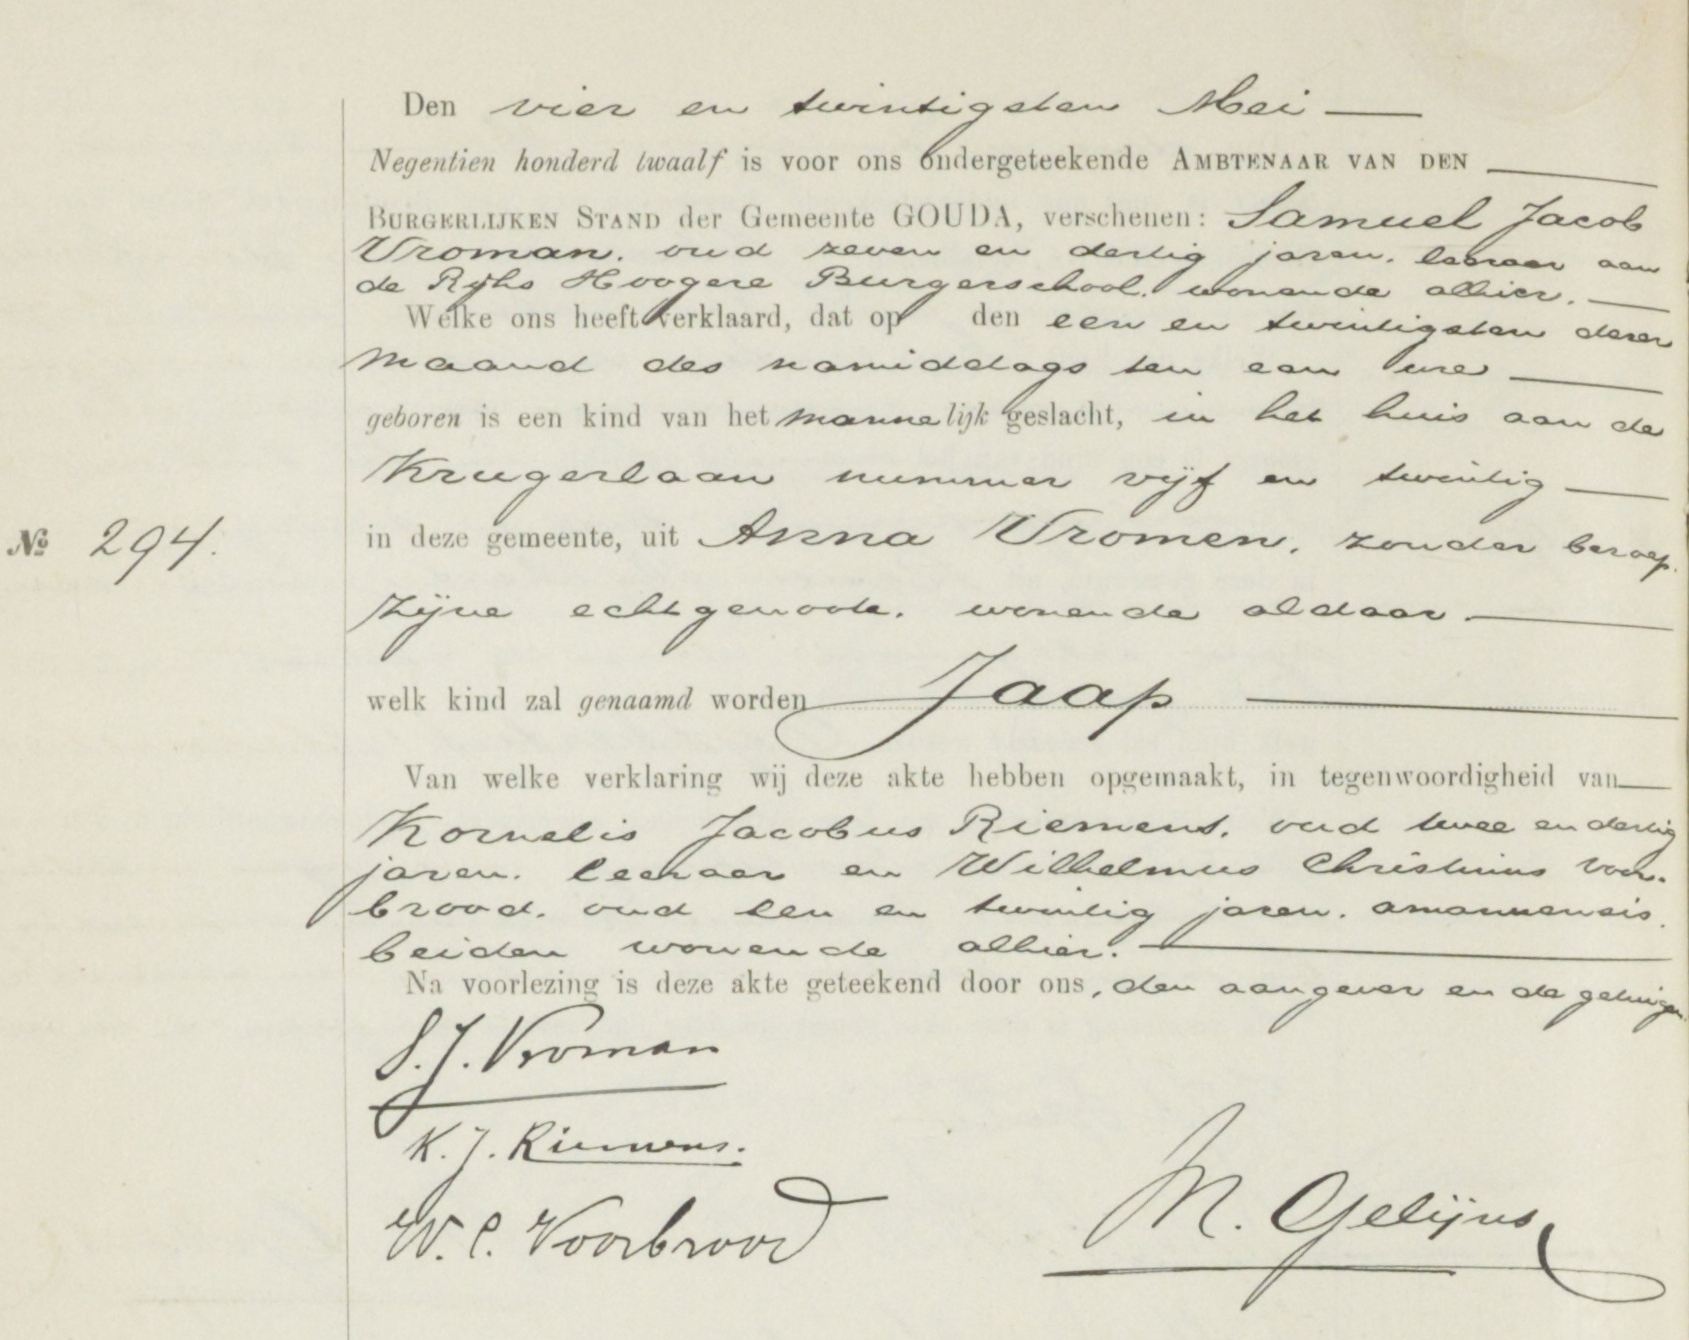 Den vier en twintigsten Mei
Negentien honderd twaalf is voor ons ondergeteekende AMBTENAAR VAN DEN
BURGERLIJKEN STAND der Gemeente GOUDA, verschenen: Samuel Jacob
Vroman. oud zeven en dertig jaren. leeraar aan
de Rijks Hoogere Burgerschool. wonende alhier.
Welke ons heeft verklaard, dat op den een en twintigsten dezer
maand des namiddags ten een ure
geboren is een kind van het mannelijk geslacht, in het huis aan de
Krugerlaan nummer vijf en twintig
in deze gemeente, uit Anna Vromen. zonder beroep.
zijne echtgenoote. wonende aldaar.
welk kind zal genaamd worden Jaap
№ 294.
Van welke verklaring wij deze akte hebben opgemaakt, in tegenwoordigheid van
Kornelis Jacobus Riemens. oud twee en dertig
jaren. leeraar en Wilhelmus Christinus Voor-
brood. oud een en twintig jaren. amanuensis.
beiden wonende alhier.
Na voorlezing is deze akte geteekend door ons, den aangever en de getuigen.
S. J. Vroman
K. J. Riemens.
W. C. Voorbrood
M. Gelijns